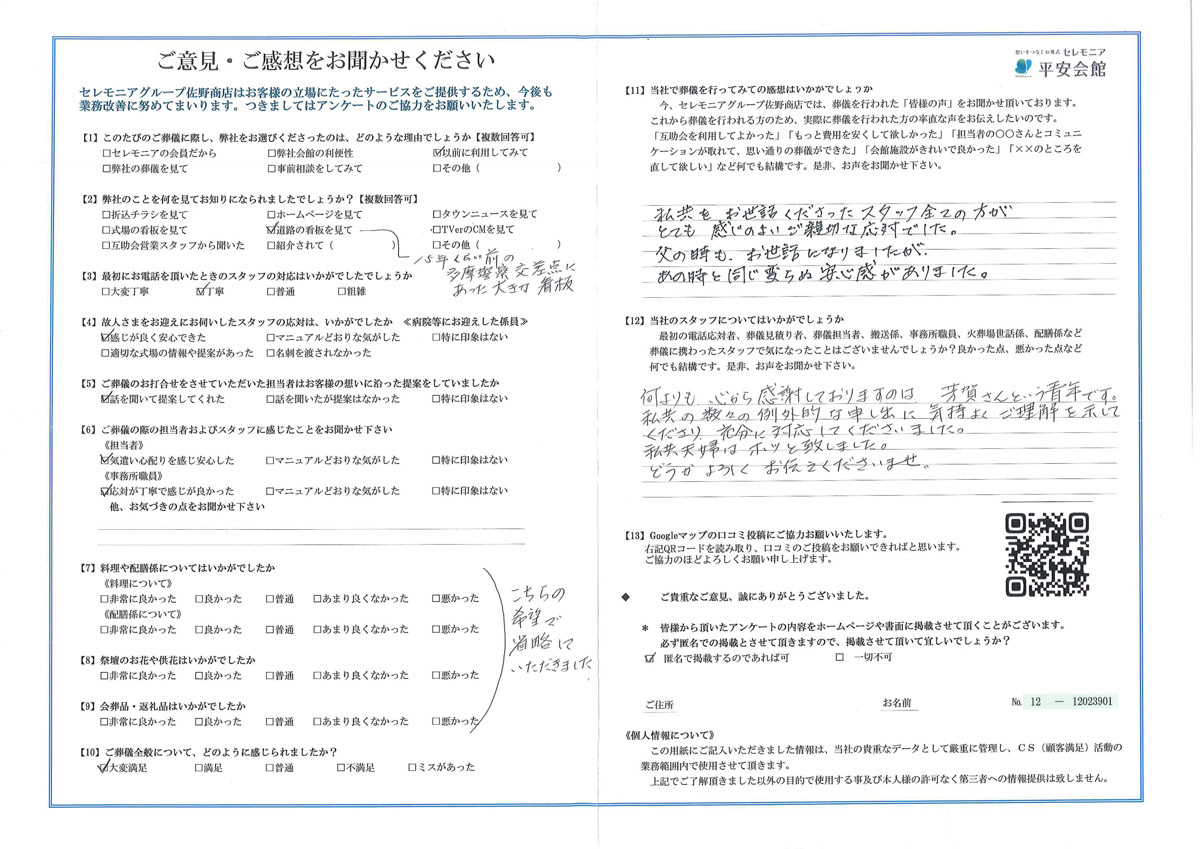 ご意見・ご感想をお聞かせください
セレモニアグループ佐野商店はお客様の立場にたったサービスをご提供するため、今後も
業務改善に努めてまいります。つきましてはアンケートのご協力をお願いいたします。
【1】このたびのご葬儀に際し、弊社をお選びくださったのは、どのような理由でしょうか【複数回答可】
□セレモニアの会員だから □弊社会館の利便性 ☑以前に利用してみて
□弊社の葬儀を見て □事前相談をしてみて □その他（ ）
【2】弊社のことを何を見てお知りになられましたでしょうか？【複数回答可】
□折込チラシを見て □ホームページを見て □タウンニュースを見て
□式場の看板を見て ☑道路の看板を見て □TVerのCMを見て
□互助会営業スタッフから聞いた □紹介されて（ ） □その他（ ）
15年くらい前の
多摩警察交差点に
あった大きな看板
【3】最初にお電話を頂いたときのスタッフの対応はいかがでしたでしょうか
□大変丁寧 ☑丁寧 □普通 □粗雑
【4】故人さまをお迎えにお伺いしたスタッフの応対は、いかがでしたか ≪病院等にお迎えした係員≫
☑感じが良く安心できた □マニュアルどおりな気がした □特に印象はない
□適切な式場の情報や提案があった □名刺を渡されなかった
【5】ご葬儀のお打合せをさせていただいた担当者はお客様の想いに沿った提案をしていましたか
☑話を聞いて提案してくれた □話を聞いたが提案はなかった □特に印象はない
【6】ご葬儀の際の担当者およびスタッフに感じたことをお聞かせ下さい
《担当者》
☑気遣い心配りを感じ安心した □マニュアルどおりな気がした □特に印象はない
《事務所職員》
☑応対が丁寧で感じが良かった □マニュアルどおりな気がした □特に印象はない
他、お気づきの点をお聞かせ下さい
【7】料理や配膳係についてはいかがでしたか
《料理について》
□非常に良かった □良かった □普通 □あまり良くなかった □悪かった
《配膳係について》
□非常に良かった □良かった □普通 □あまり良くなかった □悪かった
【8】祭壇のお花や供花はいかがでしたか
□非常に良かった □良かった □普通 □あまり良くなかった □悪かった
【9】会葬品・返礼品はいかがでしたか
□非常に良かった □良かった □普通 □あまり良くなかった □悪かった
こちらの
希望で
省略して
いただきました
【10】ご葬儀全般について、どのように感じられましたか？
☑大変満足 □満足 □普通 □不満足 □ミスがあった
想いをつなぐお葬式 セレモニア
平安会館
【11】当社で葬儀を行ってみての感想はいかがでしょうか
今、セレモニアグループ佐野商店では、葬儀を行われた「皆様の声」をお聞かせ頂いております。
これから葬儀を行われる方のため、実際に葬儀を行われた方の率直な声をお伝えしたいのです。
「互助会を利用してよかった」「もっと費用を安くして欲しかった」「担当者の〇〇さんとコミュニ
ケーションが取れて、思い通りの葬儀ができた」「会館施設がきれいで良かった」「××のところを
直して欲しい」など何でも結構です。是非、お声をお聞かせ下さい。
私共をお世話くださったスタッフ全ての方が
とても感じのよいご親切な応対でした。
父の時も、お世話になりましたが、
あの時と同じ変らぬ安心感がありました。
【12】当社のスタッフについてはいかがでしょうか
最初の電話応対者、葬儀見積り者、葬儀担当者、搬送係、事務所職員、火葬場世話係、配膳係など
葬儀に携わったスタッフで気になったことはございませんでしょうか？良かった点、悪かった点など
何でも結構です。是非、お声をお聞かせ下さい。
何よりも心から感謝しておりますのは、芳賀さんという青年です。
私共の数々の例外的な申し出に気持よくご理解を示して
くださり、充分に対応してくださいました。
私共夫婦はホッと致しました。
どうかよろしくお伝えくださいませ。
【13】Googleマップの口コミ投稿にご協力お願いいたします。
右記QRコードを読み取り、口コミのご投稿をお願いできればと思います。
ご協力のほどよろしくお願い申し上げます。
◆ ご貴重なご意見、誠にありがとうございました。
＊ 皆様から頂いたアンケートの内容をホームページや書面に掲載させて頂くことがございます。
必ず匿名での掲載とさせて頂きますので、掲載させて頂いて宜しいでしょうか？
☑ 匿名で掲載するのであれば可 □ 一切不可
ご住所 お名前 № 12 － 12023901
《個人情報について》
この用紙にご記入いただきました情報は、当社の貴重なデータとして厳重に管理し、ＣＳ（顧客満足）活動の
業務範囲内で使用させて頂きます。
上記でご了解頂きました以外の目的で使用する事及び本人様の許可なく第三者への情報提供は致しません。